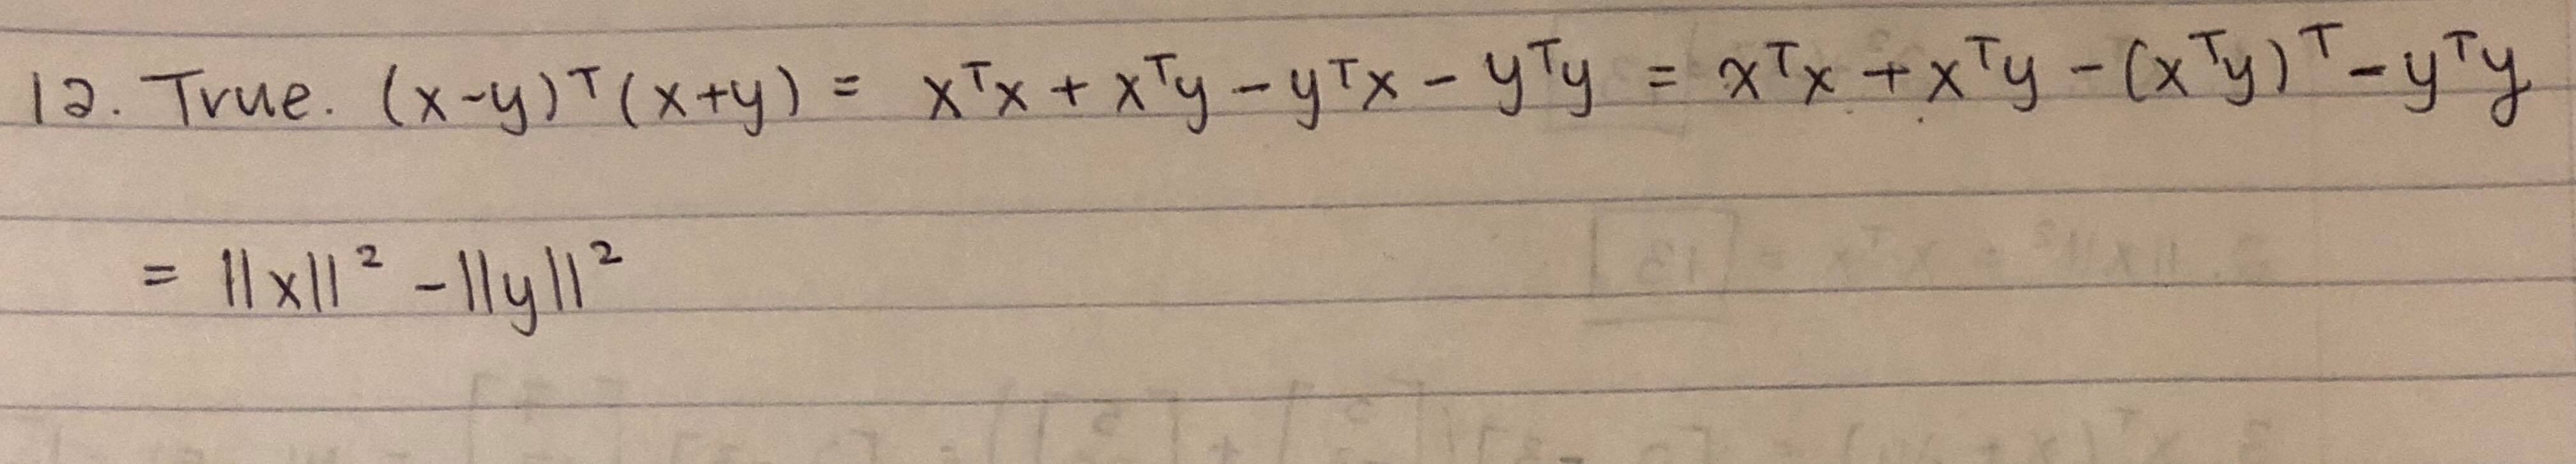 12. True. (x-y)ᵀ(x+y) = xᵀx + xᵀy - yᵀx - yᵀy = xᵀx + xᵀy - (xᵀy)ᵀ - yᵀy
= ||x||² - ||y||²